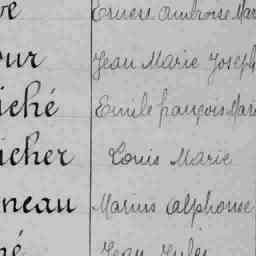 ve Ernest Ambroise Mar
our Jean Marie Joseph
iché Emile françois Mar
icher Louis Marie
neau Marius Alphonse
hé Jean Jules